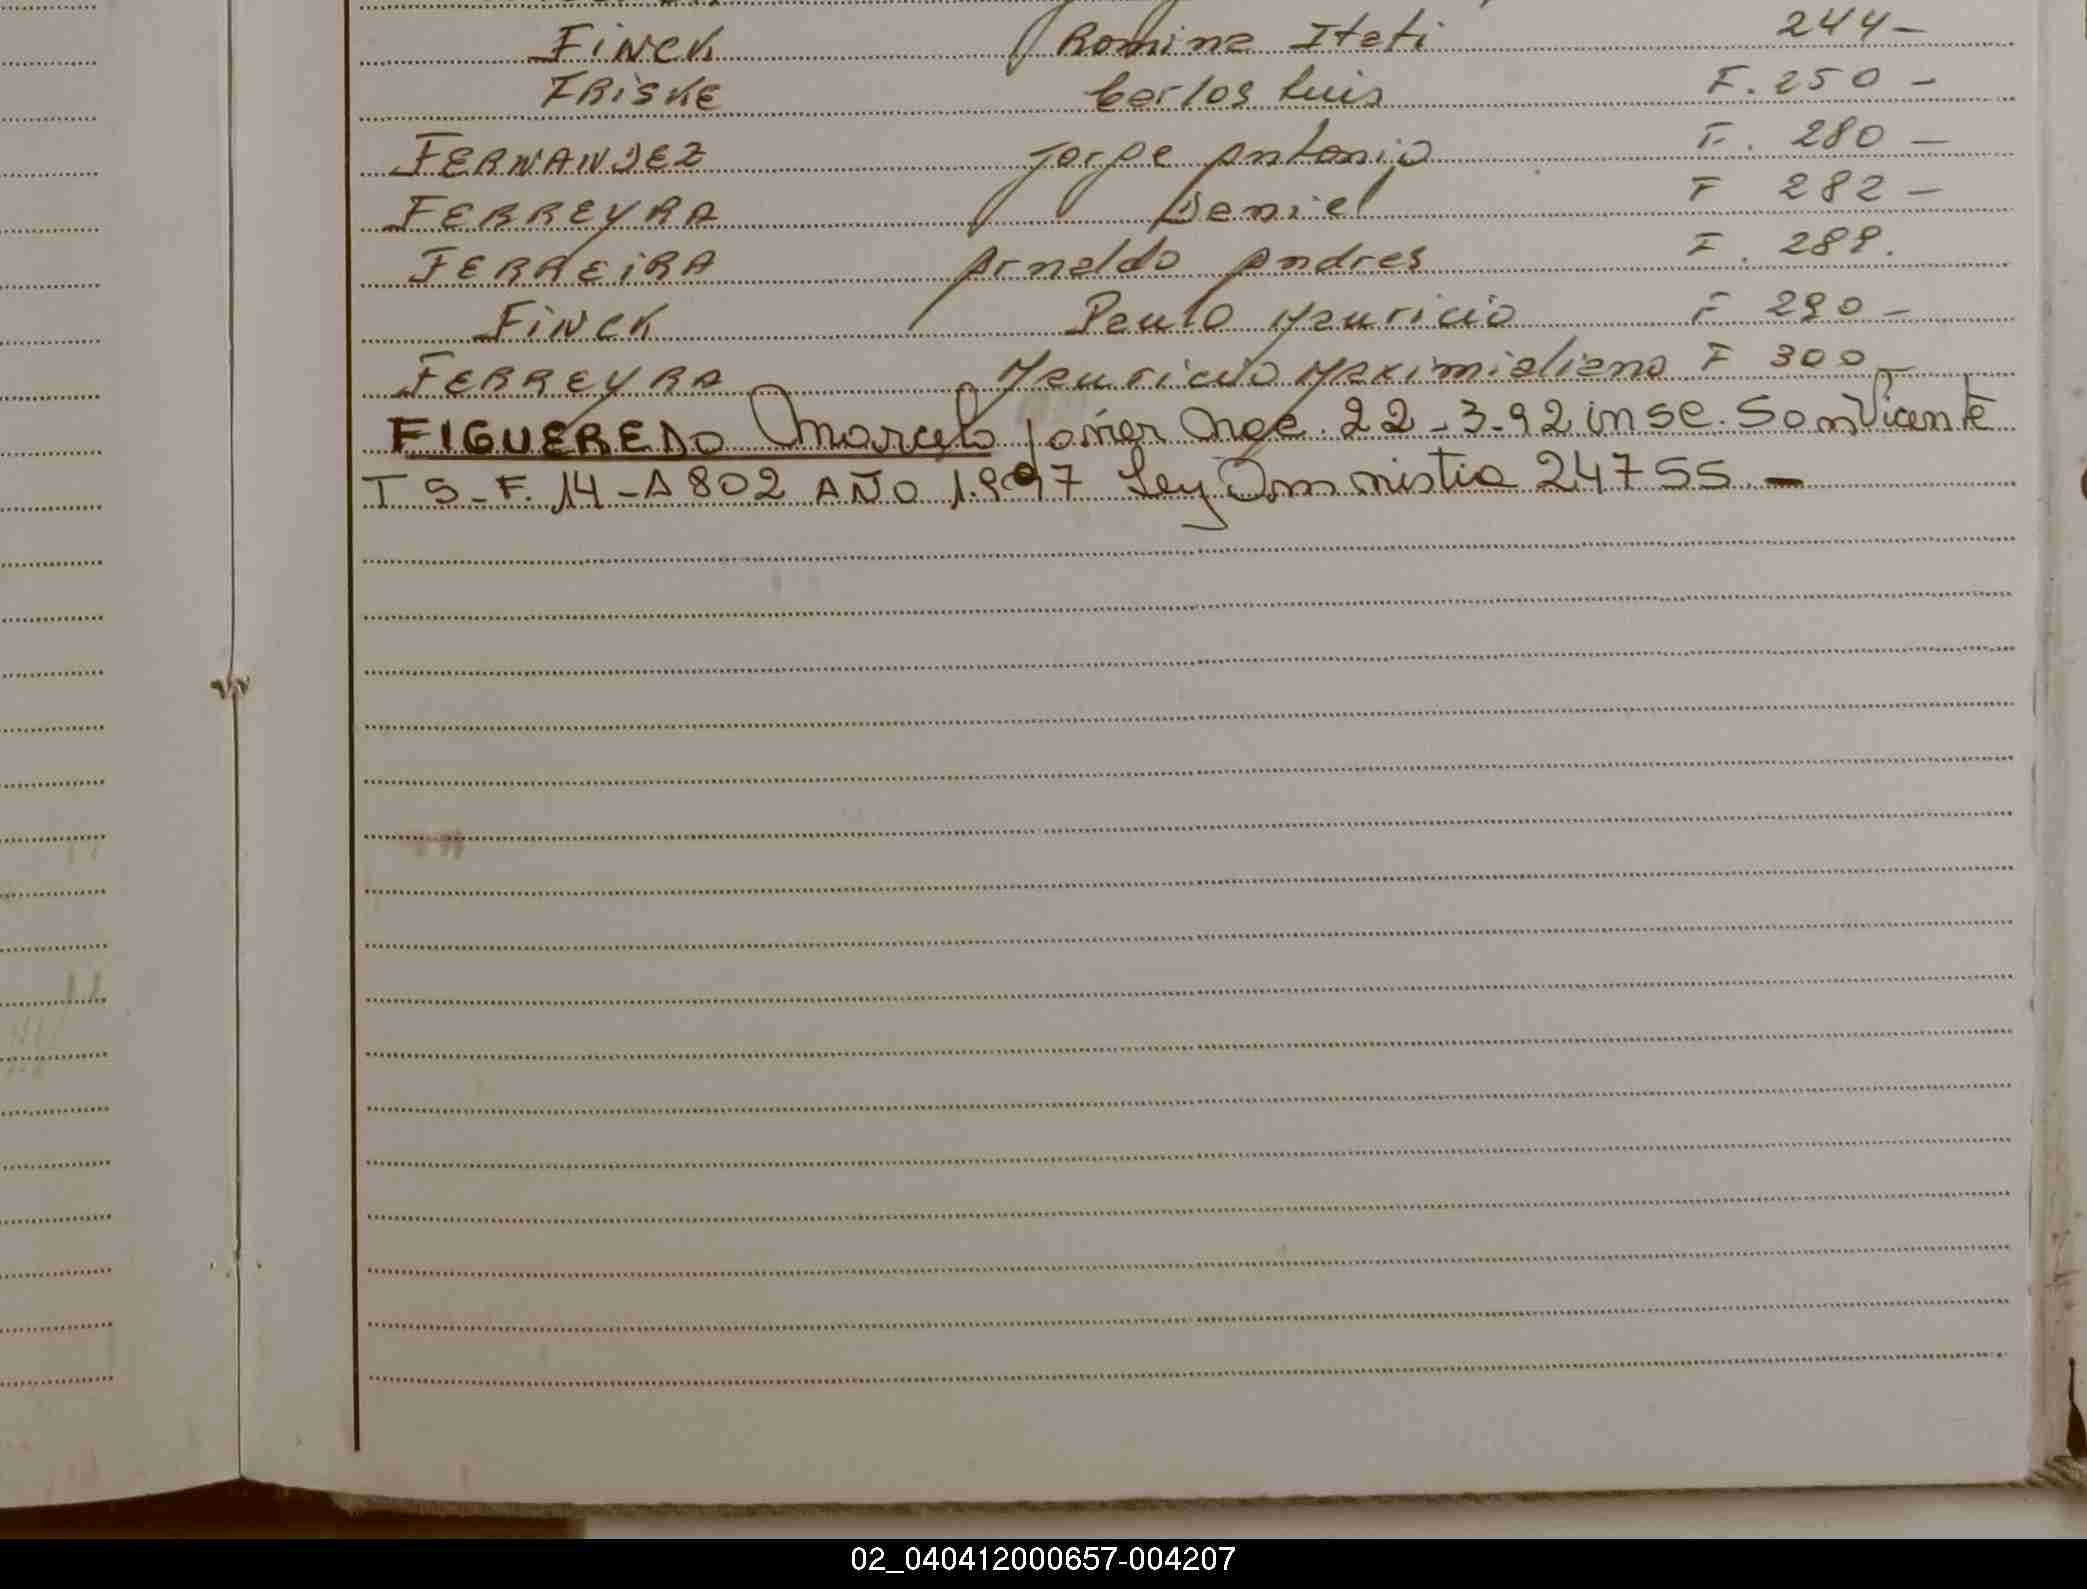 FINCK Romina Itati 244-
FRISKE Carlos Luis F. 250-
FERNANDEZ Jorge Antonio F. 280-
FERREYRA Daniel F 282-
FERREIRA Arnaldo Andres F. 289.
FINCK Paulo Mauricio F 290-
FERREYRA Mauricio Maximialiano F 300-
FIGUEREDO Marcelo Javier Nac. 22-3-92 insc. San Vicente
T S-F. 14-A 802 AÑO 1.997 Ley Amnistia 24755.-
02_040412000657-004207